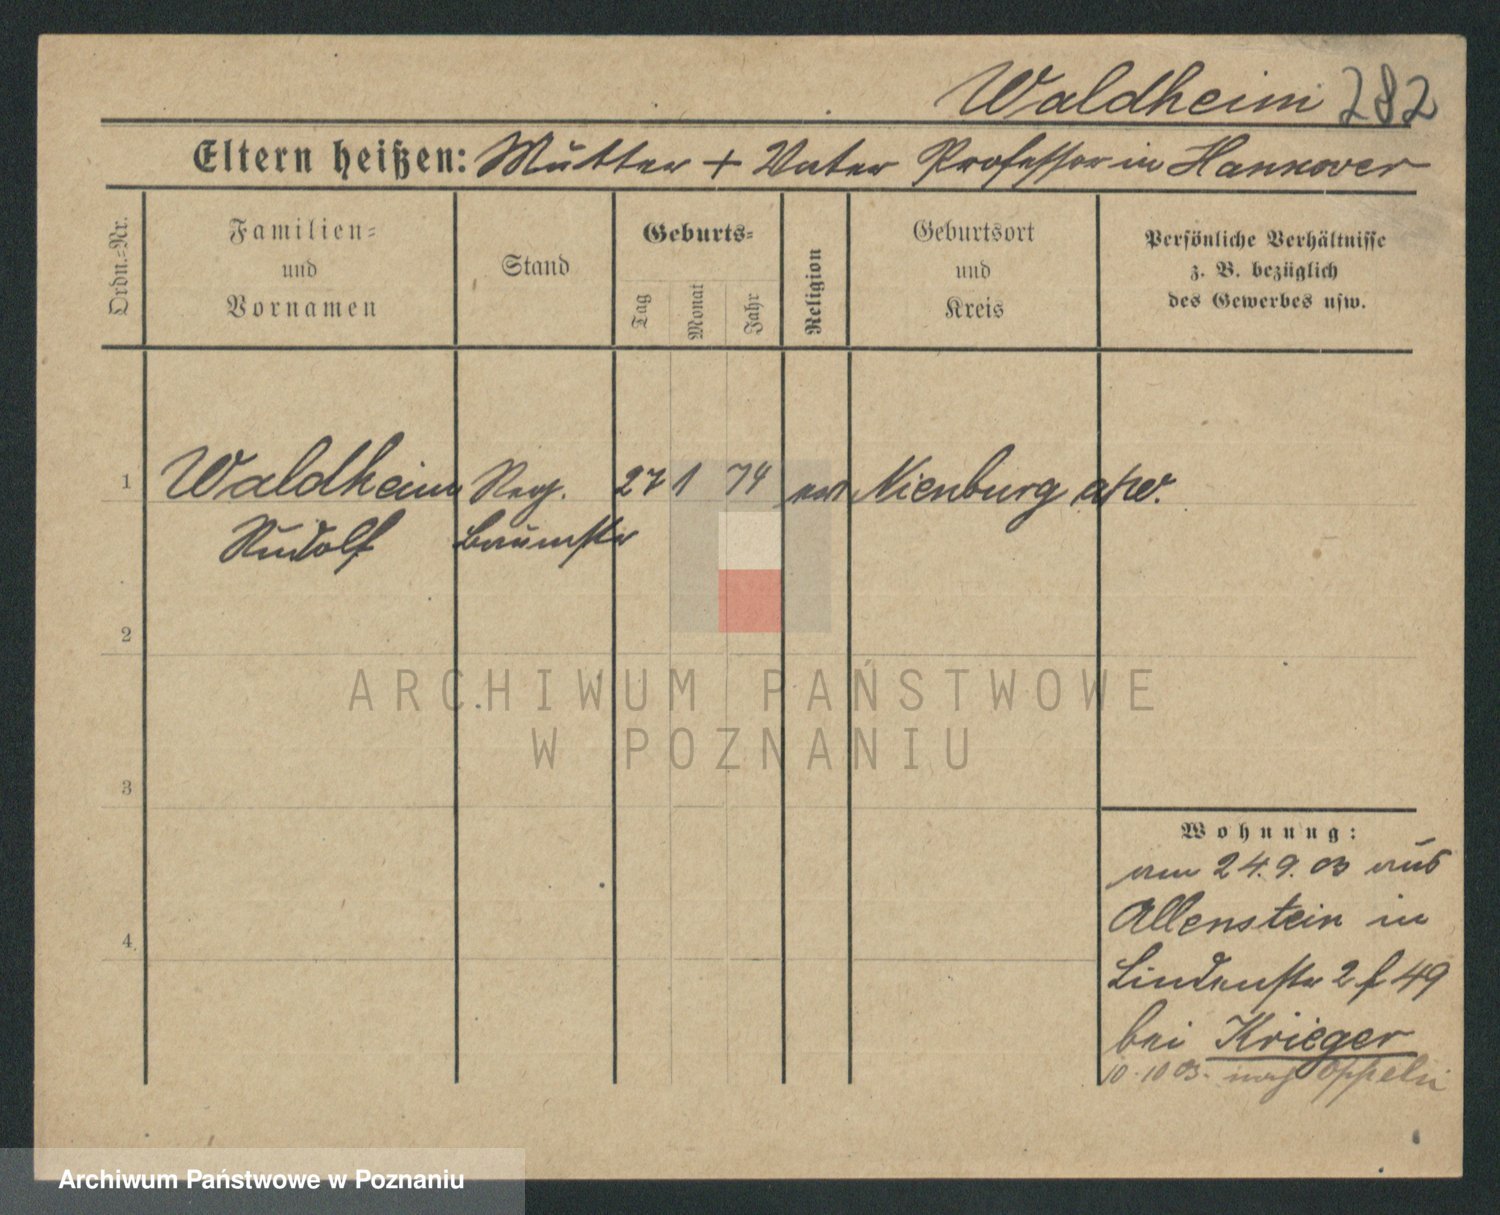 Waldheim 282
Eltern heißen: Mutter + Vater Professor in Hannover
Ordn.-Nr.
Familien-
und
Vornamen
Stand
Geburts-
Tag
Monat
Jahr
Religion
Geburtsort
und
Kreis
Persönliche Verhältnisse
z. B. bezüglich
des Gewerbes usw.
1 Waldheim Reg. 27 1 74 Nienburg a/w.
Rudolf Baumstr
2
3
4
Wohnung:
am 24.9.03 aus
Allenstein in
Lindenstr 2 f 49
bei Krieger
10.10 03. nach Oppeln
ARCHIWUM PAŃSTWOWE
W POZNANIU
Archiwum Państwowe w Poznaniu